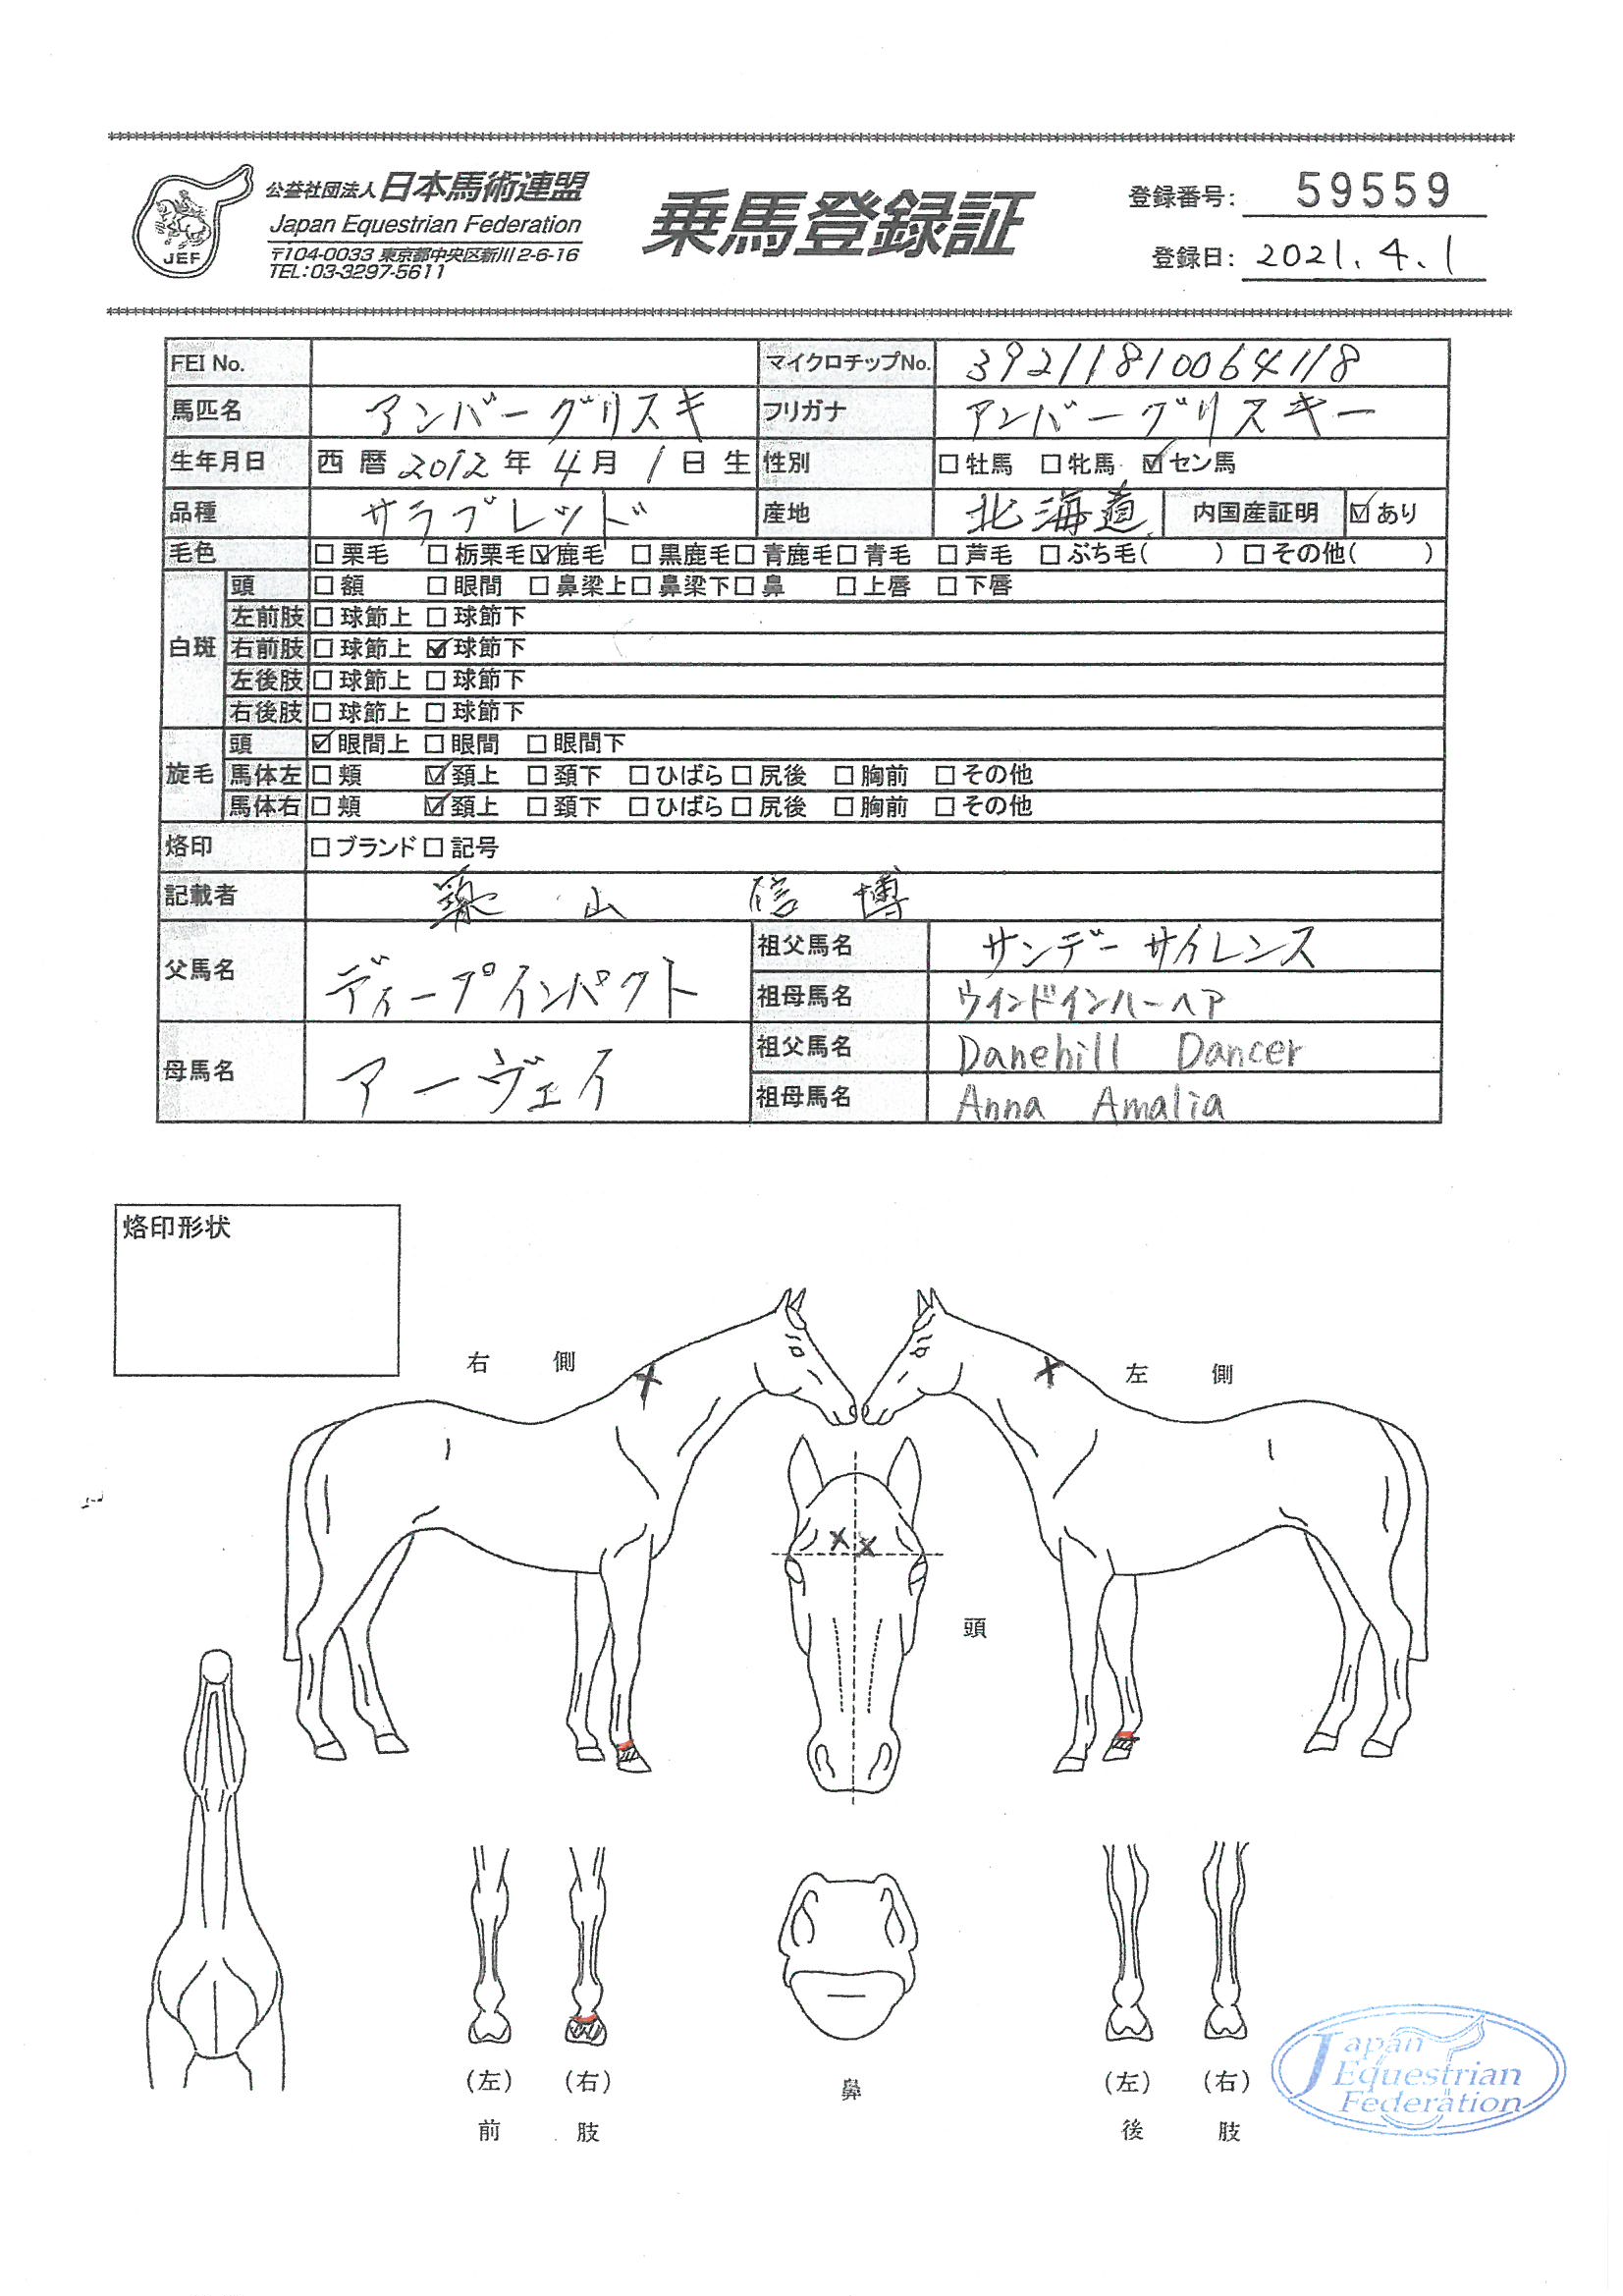 公益社団法人 日本馬術連盟
Japan Equestrian Federation
〒104-0033 東京都中央区新川2-6-16
TEL:03-3297-5611
JEF
乗馬登録証
登録番号: 59559
登録日: 2021.4.1
FEI No. マイクロチップNo. 392118100641118
馬匹名 アンバーグリスキ フリガナ アンバーグリスキー
生年月日 西暦 2012年 4月 1日生 性別 □牡馬 □牝馬 ☑セン馬
品種 サラブレッド 産地 北海道 内国産証明 ☑あり
毛色 □栗毛 □栃栗毛 ☑鹿毛 □黒鹿毛 □青鹿毛 □青毛 □芦毛 □ぶち毛( ) □その他( )
白斑 頭 □額 □眼間 □鼻梁上 □鼻梁下 □鼻 □上唇 □下唇
左前肢 □球節上 □球節下
右前肢 □球節上 ☑球節下
左後肢 □球節上 □球節下
右後肢 □球節上 □球節下
旋毛 頭 ☑眼間上 □眼間 □眼間下
馬体左 □頬 ☑頚上 □頚下 □ひばら □尻後 □胸前 □その他
馬体右 □頬 ☑頚上 □頚下 □ひばら □尻後 □胸前 □その他
烙印 □ブランド □記号
記載者 山 信 博
父馬名 ディープインパクト 祖父馬名 サンデーサイレンス
祖母馬名 ウインドインハーヘア
母馬名 アーヴェイ 祖父馬名 Danehill Dancer
祖母馬名 Anna Amalia
烙印形状
右側
左側
頭
(左) (右)
前肢
鼻
(左) (右)
後肢
Japan
Equestrian
Federation